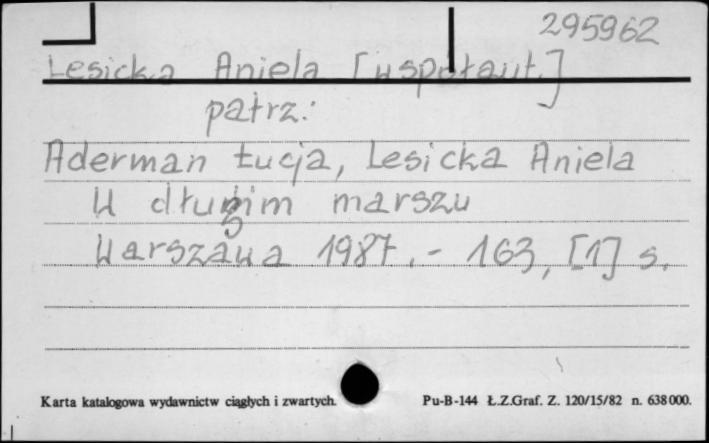 295962
Lesicka Aniela [współaut.]
patrz:
Aderman Łucja, Lesicka Aniela
W długim marszu
Warszawa 1987. - 163, [1] s.
Karta katalogowa wydawnictw ciągłych i zwartych. Pu-B-144 Ł.Z.Graf. Z. 120/15/82 n. 638000.